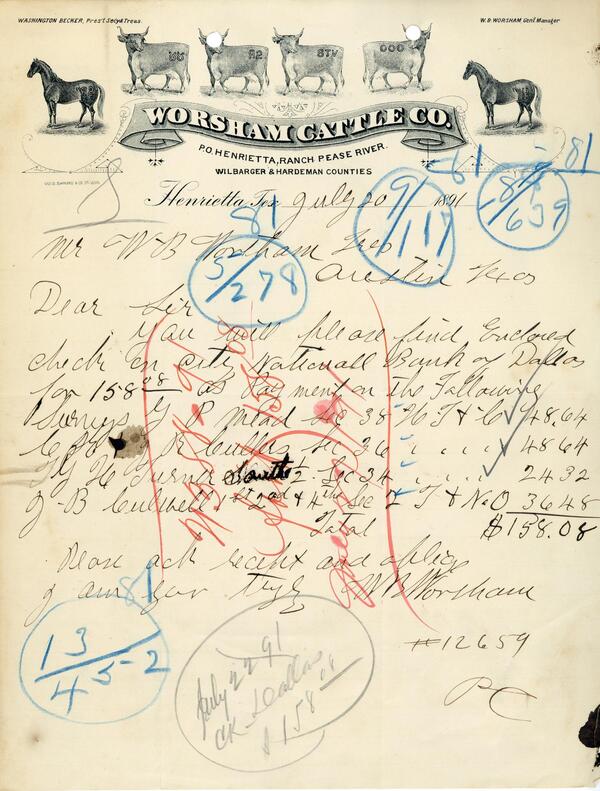 WASHINGTON BECKER, Pres't Secy & Treas.
W. B. WORSHAM Genl. Manager
UU R2 STV OOO
WORSHAM CATTLE CO.
P.O. HENRIETTA, RANCH PEASE RIVER.
WILBARGER & HARDEMAN COUNTIES
Henrietta, Tex, July 20 1891
81
9/117
81
81
639
Mr W B Wortham Tres
Austin Texas
81
278
Dear Sir
You will please find Enclosed
check on city Nationall Bank of Dallas
for 158.08 as payment on the following
Surveys J P Mead Sec 38 H T & C 48.64
R Cullers Sec 36 " " " 48 64
H Turner South 1/2 Sec 34 " " " 24 32
J B Culwell 2nd & 4th Sec 2 T & N.O 36 48
Total $158.08
Please ack receipt and oblige
Yours Truly W B Worsham
81
13/452
July 22 91
ck Dallas
$158.08
#12659